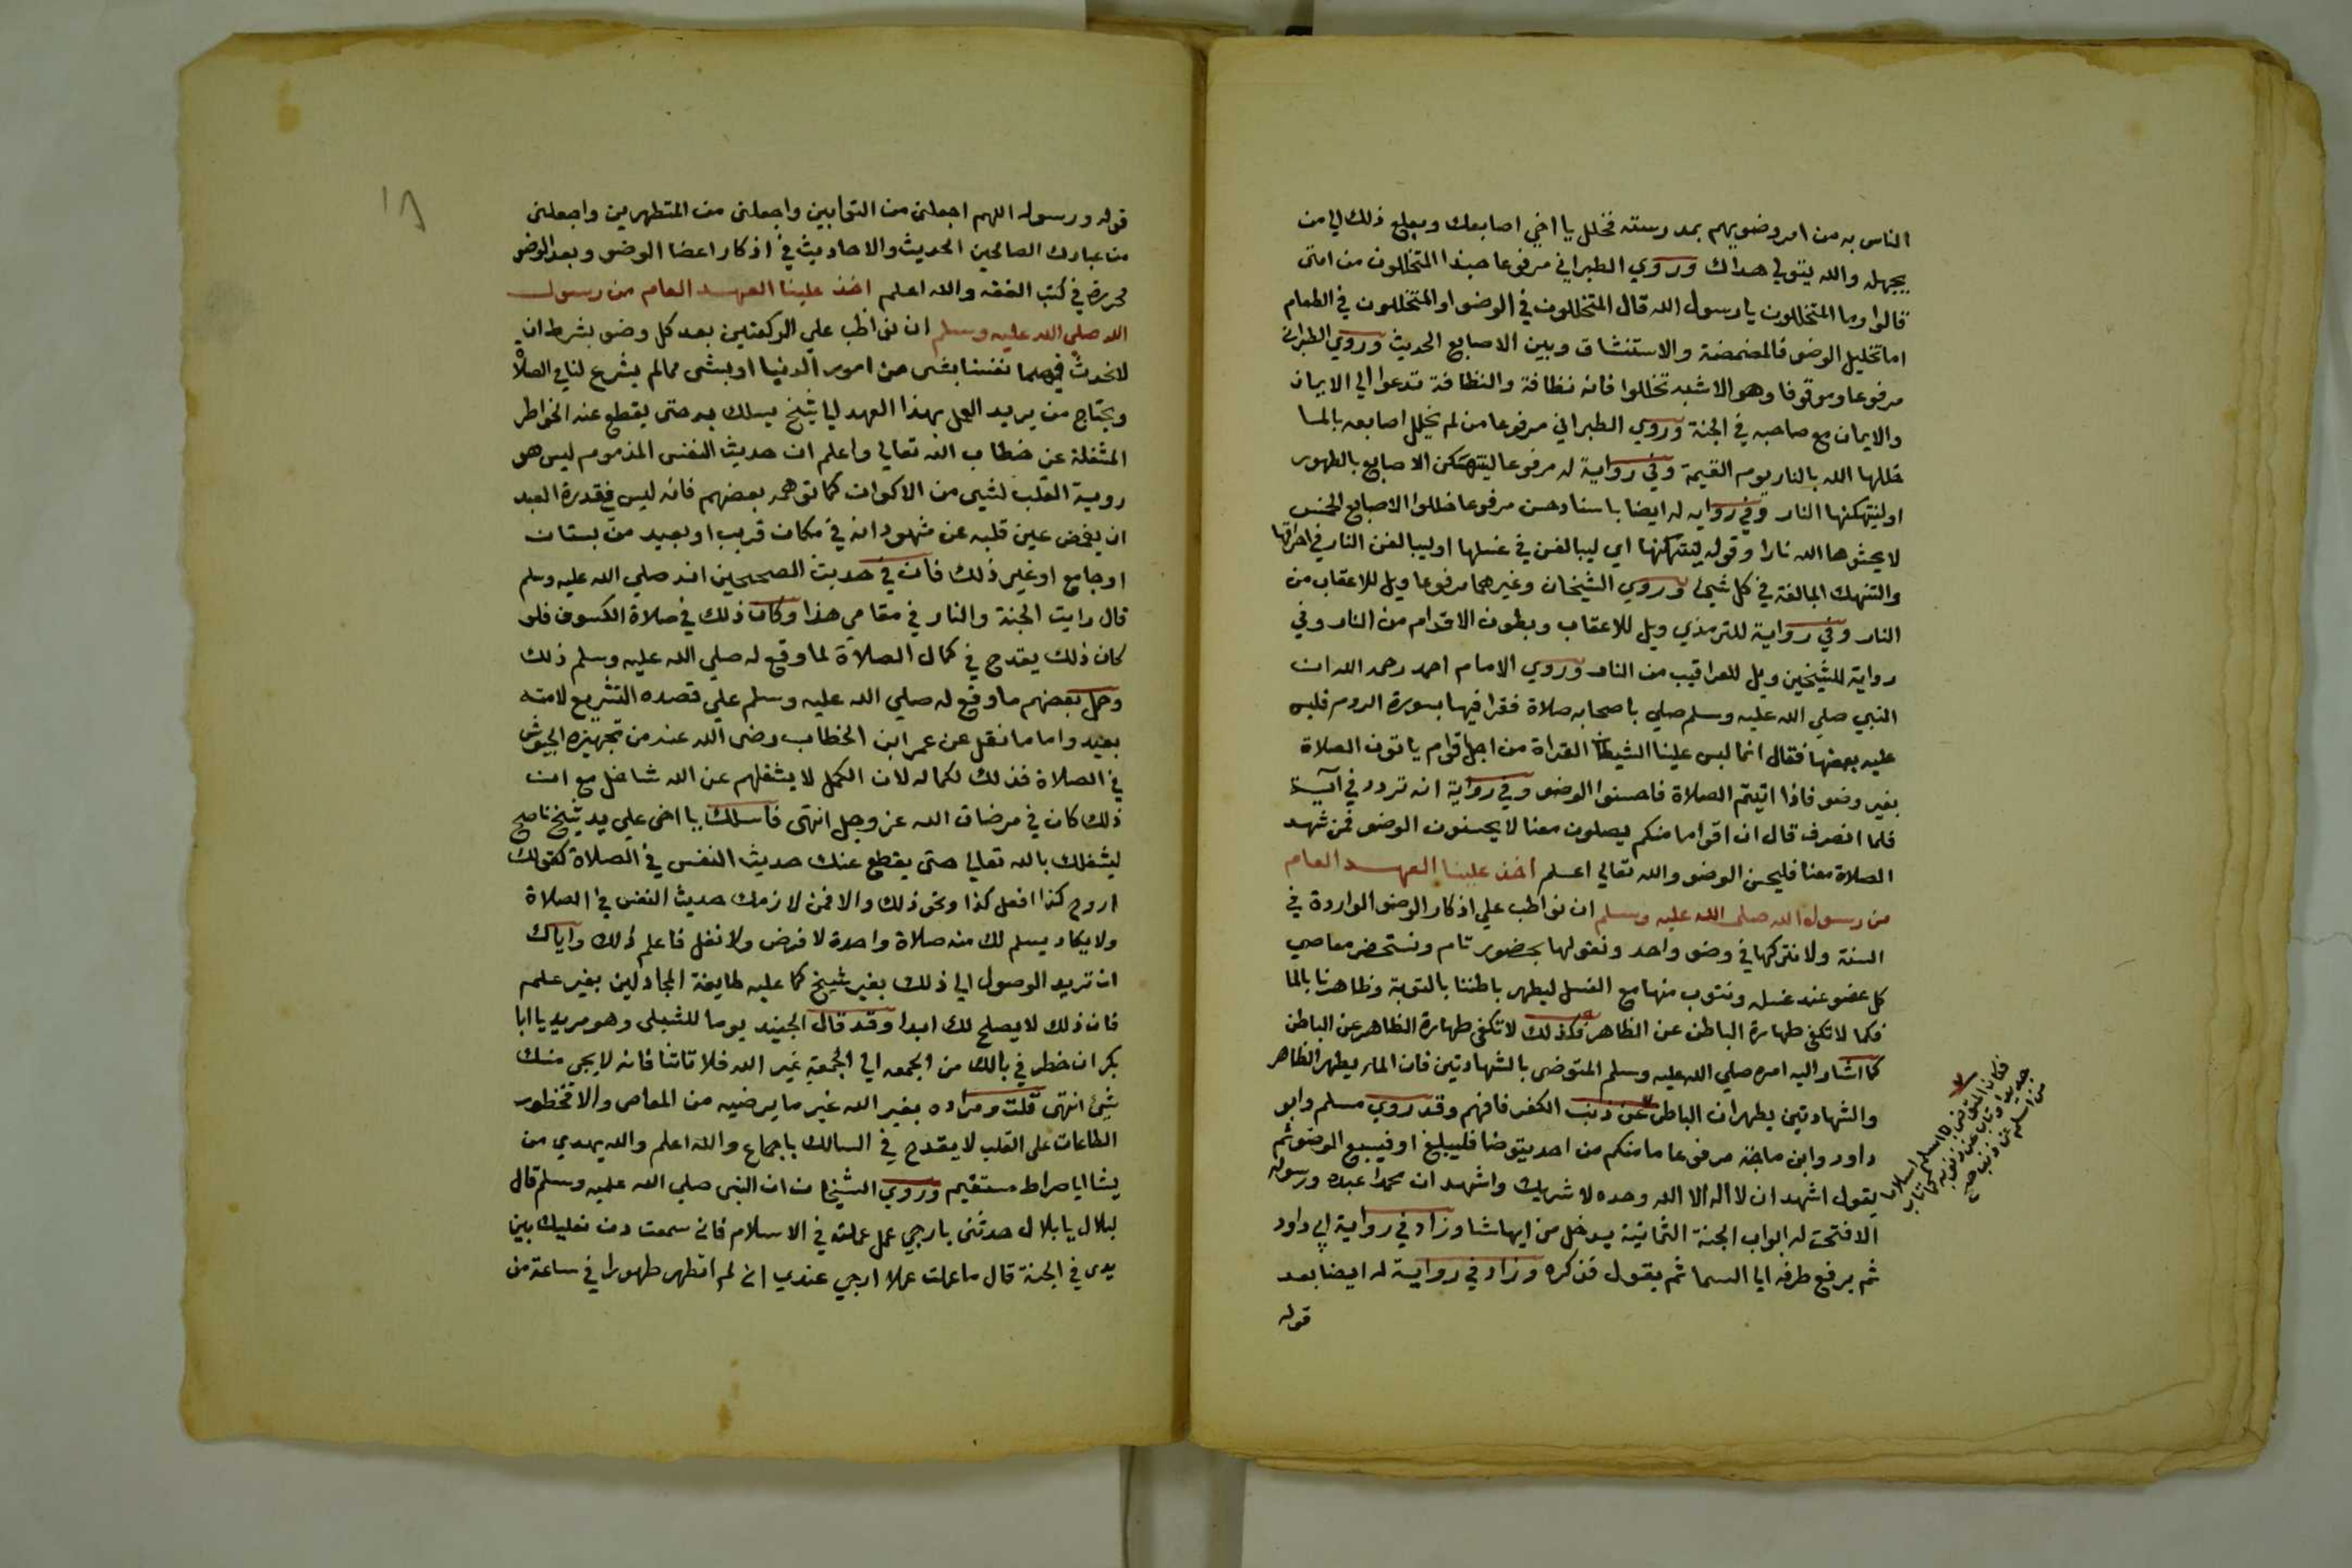 الناس به من امر وضويهم بمدرسته فخلل يا اخي اصابعك وبلغ ذلك الي من
يجهله والله يتولي هداك وروي الطبراني مرفوعا حبذا المتخللون من امتي
قالوا وما المتخللون يا رسول الله قال المتخللون في الوضو والمتخللون في الطعام
اما تخليل الوضو فالمضمضة والاستنشاق وبين الاصابع الحديث وروي الطبراني
مرفوعا وموقوفا وهو الاشبه تخللوا فانه نظافة والنظافة تدعوا الي الايمان
والايمان مع صاحبه في الجنة وروي الطبراني مرفوعا من لم يخلل اصابعه بالما
خللها الله بالنار يوم القيمة وفي رواية له مرفوعا لتنتهكن الاصابع بالطهور
او لتنتهكنها النار وفي روايه له ايضا باسناد حسن مرفوعا خللوا الاصابع الخمس
لا يحشوها الله نارا وقوله لتنتهكنها اي ليبالغن في غسلها او ليبالغن النار في احراقها
والتنهك المبالغة في كل شيئ وروي الشيخان وغيرهما مرفوعا ويل للاعقاب من
النار وفي رواية للترمذي ويل للاعقاب وبطون الاقدام من النار وفي
رواية للشيخين ويل للعراقيب من النار وروي الامام احمد رحمه الله ان
النبي صلي الله عليه وسلم صلي باصحابه صلاة فقرا فيها بسورة الروم فلبس
عليه بعضها فقال انما لبس علينا الشيطان القراة من اجل اقوام ياتون الصلاة
بغير وضو فاذا اتيتم الصلاة فاحسنوا الوضو وفي رواية انه تردد في آية
فلما انصرف قال ان اقواما منكم يصلون معنا لا يحسنون الوضو فمن شهد
الصلاة معنا فليحسن الوضو والله تعالي اعلم اخذ علينا العهد العام
من رسول الله صلي الله عليه وسلم ان نواظب علي اذكار الوضو الواردة في
السنة ولا نتركها في وضو واحد ونقولها بحضور تام ونستحضر معاصي
كل عضو عند غسله ونتوب منها مع الغسل ليطهر باطننا بالتوبة وظاهرنا بالما
فكما لا تكفي طهارة الباطن عن الظاهر وكذلك لا تكفي طهارة الظاهر عن الباطن
كما اشار اليه امره صلي الله عليه وسلم المتوضي بالشهادتين فان الما يطهر الظاهر
والشهادتين يطهران الباطن عن ذنب الكفر فافهم وقد روي مسلم وابو
داود وابن ماجة مرفوعا ما منكم من احد يتوضا فليبلغ او فيسبغ الوضو ثم
يقول اشهد ان لا اله الا الله وحده لا شريك واشهد ان محمدا عبده ورسوله
الا فتحت له ابواب الجنة الثمانية يدخل من ايها شا وزاد في رواية ابي داود
ثم يرفع طرفه الي السما ثم يقول فذكره وزاد في رواية له ايضا بعد
قوله
فكان المتوضي اسلم اسلاما
جديدا وتاب عن ذنوبه كما تاب
من اسلم عن ذنب صح
١٨
قوله ورسوله اللهم اجعلني من التوابين واجعلني من المتطهرين واجعلني
من عبادك الصالحين الحديث والاحاديث في اذكار اعضا الوضو وبعد الوضو
محررة في كتب الفقه والله اعلم اخذ علينا العهد العام من رسول
الله صلي الله عليه وسلم ان نواظب علي الركعتين بعد كل وضو بشرط ان
لا نحدث فيهما نفسنا بشي من امور الدنيا او بشي مما لم يشرع لنا في الصلاة
ويحتاج من يريد العمل بهذا العهد لي شيخ يسلك به حتي يقطع عنه الخواطر
المشغلة عن خطاب الله تعالي واعلم ان حديث النفس المذموم ليس هو
روية القلب لشيي من الاكوان كما توهمه بعضهم فانه ليس في قدرة العبد
ان يغمض عين قلبه عن شهود انه في مكان قريب او بعيد من بستان
او جامع او غير ذلك فان في حديث الصحيحين انه صلي الله عليه وسلم
قال رايت الجنة والنار في مقامي هذا وكان ذلك في صلاة الكسوف فلو
كان ذلك يقدح في كمال الصلاة لما وقع له صلي الله عليه وسلم ذلك
وحمل بعضهم ما وقع له صلي الله عليه وسلم علي قصده التشريع لامته
بعيد واما ما نقل عن عمر ابن الخطاب رضي الله عنه من تجهيزه الجيوش
في الصلاة فذلك لكماله لان الكمل لا يشغلهم عن الله شاغل مع ان
ذلك كان في مرضات الله عز وجل انتهي فاسلك يا اخي علي يد شيخ ناصح
ليشغلك بالله تعالي حتي يقطع عنك حديث النفس في الصلاة كقولك
اروح كذا افعل كذا ونحو ذلك والا فمن لازمك حديث النفس في الصلاة
ولا يكاد يسلم لك منه صلاة واحدة لا فرض ولا نفل فاعلم ذلك واياك
ان تريد الوصول الي ذلك بغير شيخ كما عليه طايفة المجادلين بغير علم
فان ذلك لا يصلح لك ابدا وقد قال الجنيد يوما للشبلي وهو مريد يا ابا
بكر ان خطر في بالك من الجمعه الي الجمعة غير الله فلا تاتنا فانه لا يجي منك
شيئ انتهي قلت ومراده بغير الله غير ما يرضيه من المعاصي والا فخطور
الطاعات علي القلب لا يقدح في السالك باجماع والله اعلم والله يهدي من
يشا الي صراط مستقيم وروي الشيخان ان النبي صلي الله عليه وسلم قال
لبلال يا بلال حدثني بارجي عمل عملته في الاسلام فاني سمعت دف نعليك بين
يدي في الجنة قال ما عملت عملا ارجي عندي اني لم اتطهر طهورا في ساعة من